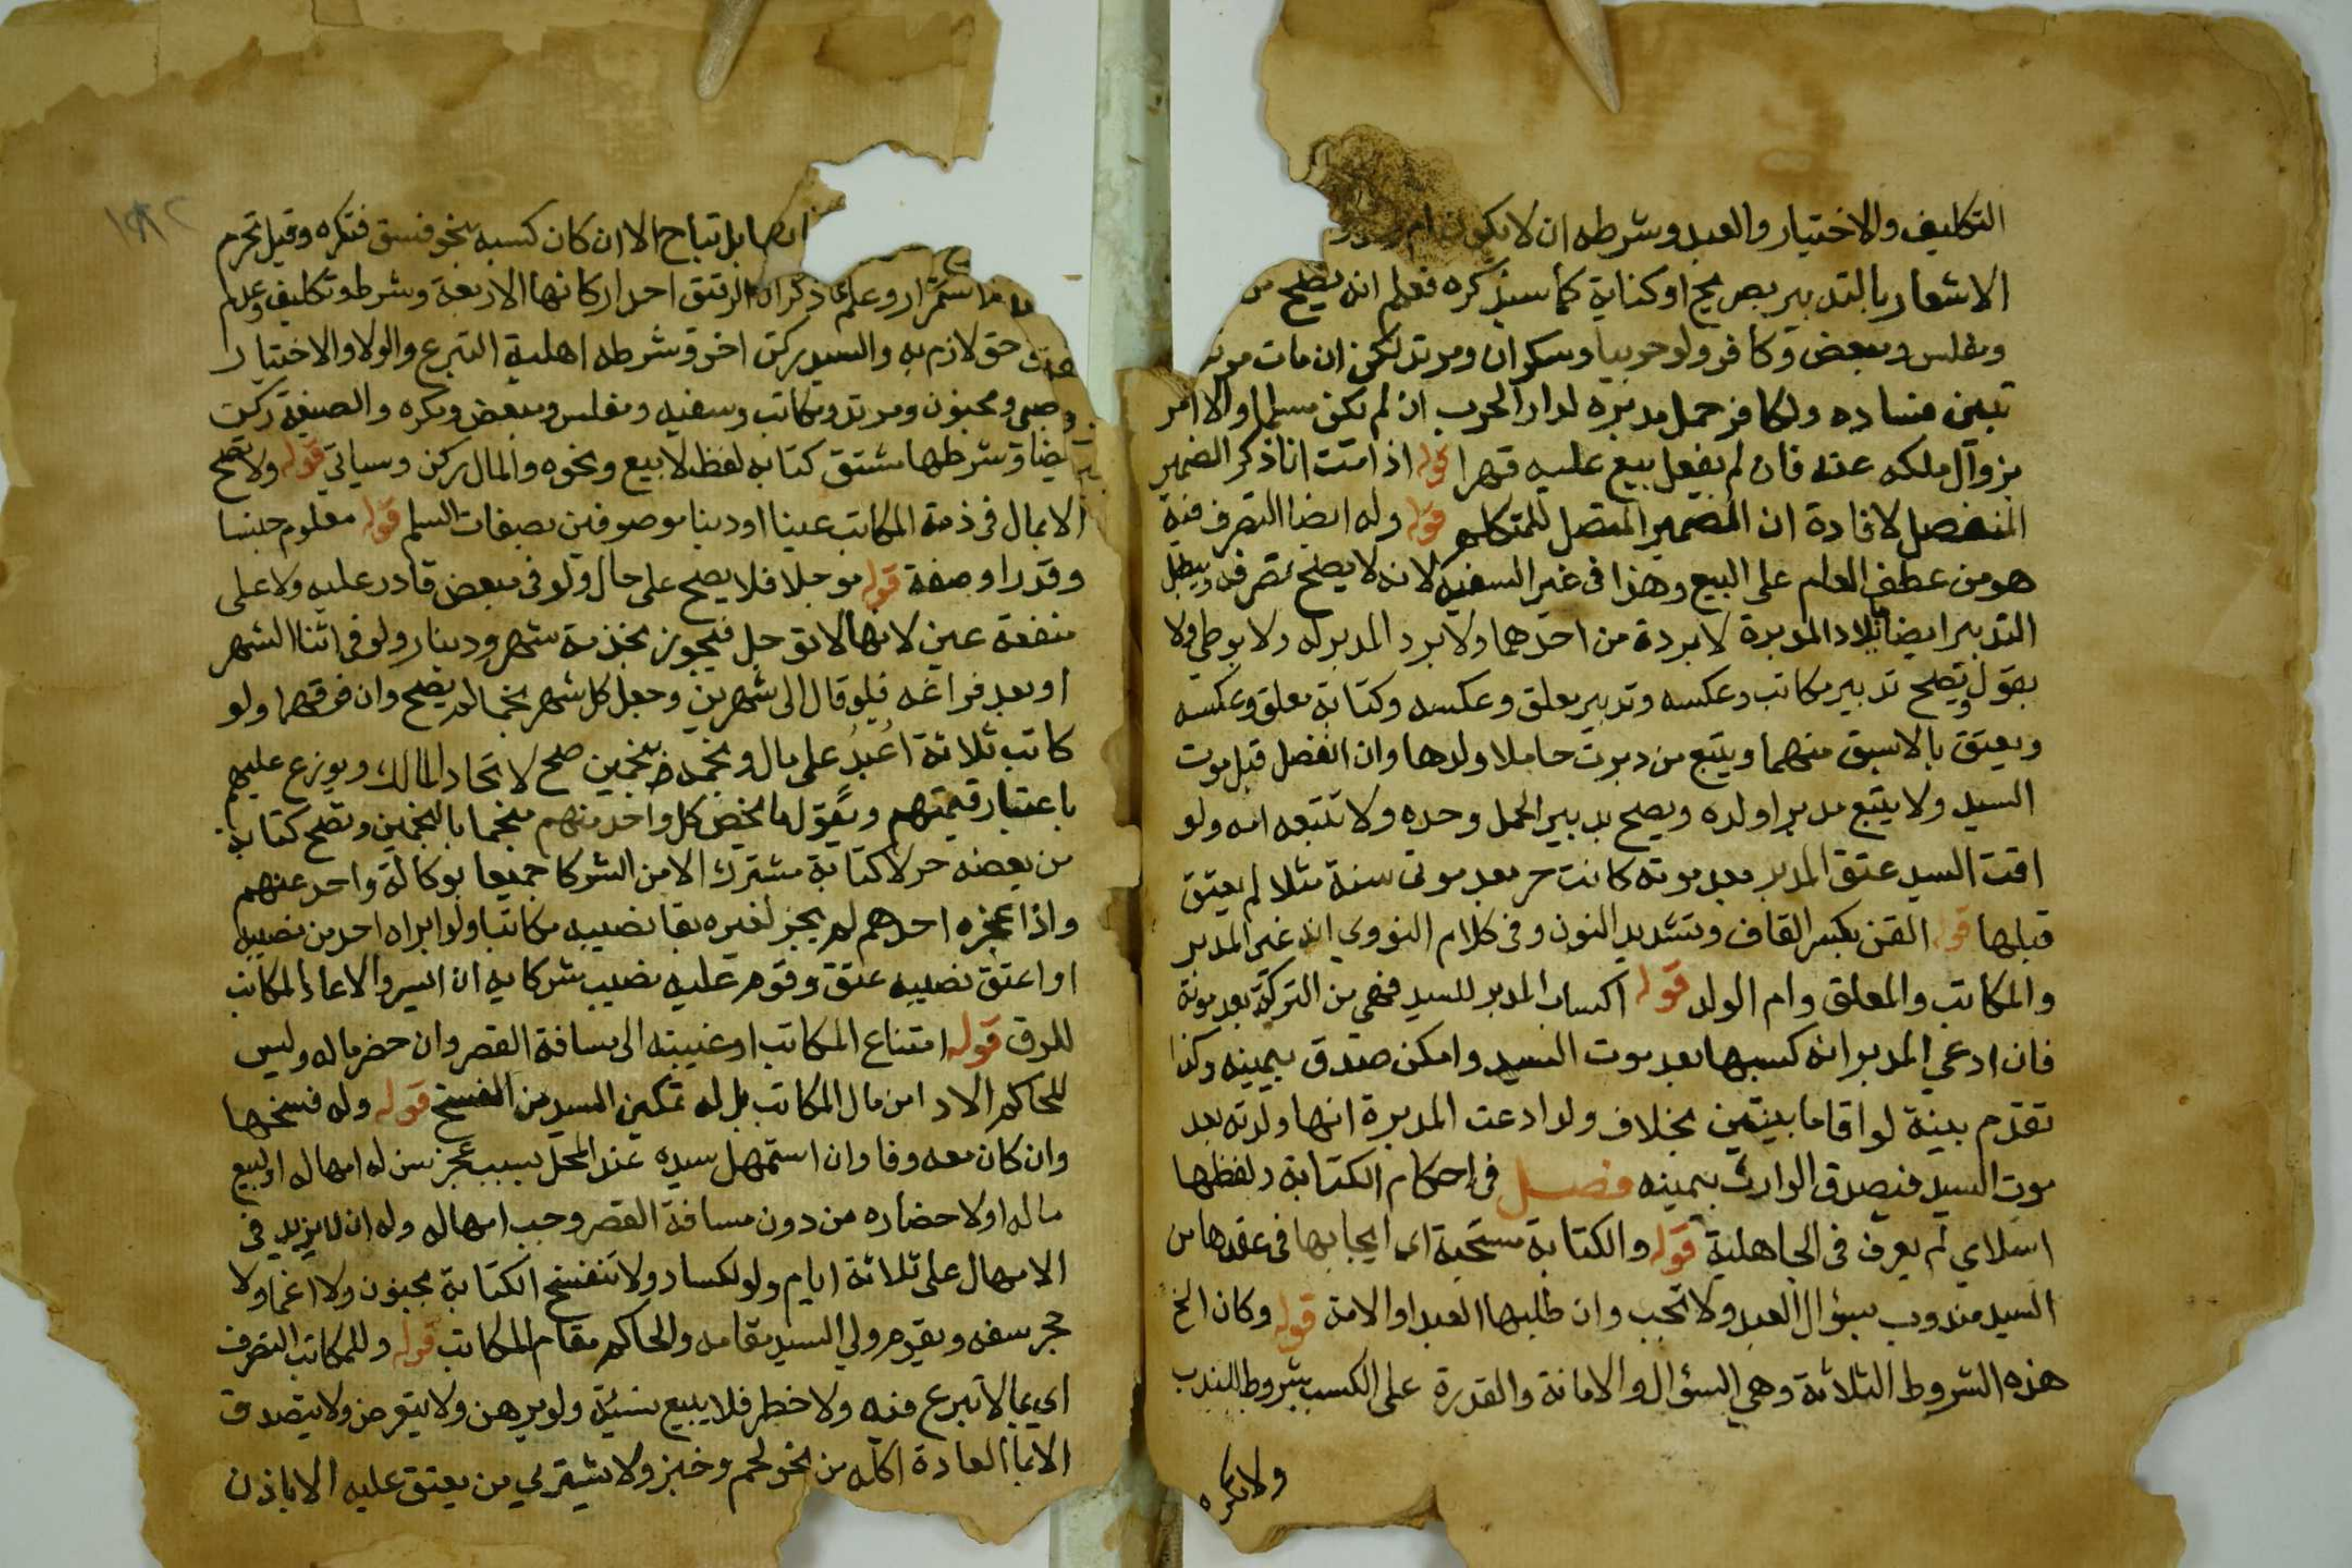 التكليف والاختيار والعبد وشرطه ان لا يكون ام ولد و
الاشعار بالتدبير بصريح او كناية كما سيذكره فعلم انه يصح من
ومفلس ومبعض وكافر ولو حربيا وسكران ومرتد لكن ان مات مرتدا
تبين فساده ولكافر حمل مدبره لدار الحرب ان لم يكن مسلما والا امر
بزوال ملكه عنه فان لم يفعل بيع عليه قهرا قوله اذا مت انا ذكر الضمير
المنفصل لافادة ان الضمير المتصل للمتكلم قوله وله ايضا التصرف فيه
هو من عطف العام على البيع وهذا في غير السفيه لانه لا يصح تصرفه ويبطل
التدبير ايضا بايلاد المدبرة لا بردة من احدهما ولا برد المدبر له ولا بوطئ ولا
بقول ويصح تدبير مكاتب وعكسه وتدبير معلق وعكسه وكتابة معلق وعكسه
ويعتق بالاسبق منهما ويتبع من دبرت حاملا ولدها وان انفصل قبل موت
السيد ولا يتبع مدبرا ولده ويصح تدبير الحمل وحده ولا تتبعه امه ولو
اقت السيد عتق المدبر بعد موته كانت حر بعد موتى سنة مثلا لم يعتق
قبلها قوله القن بكسر القاف وتشديد النون وفي كلام النووي انه غير المدبر
والمكاتب والمعلق وام الولد قوله اكساب المدبر للسيد فهي من التركة بعد موته
فان ادعى المدبر انه كسبها بعد موت السيد وامكن صدق بيمينه وكذا
تقدم بينة لو اقاما بينتين بخلاف ولد ادعت المدبرة انها ولدته بعد
موت السيد فيصدق الوارث بيمينه فصل في احكام الكتابة ولفظها
اسلامي لم يعرف في الجاهلية قوله والكتابة مستحبة اى ايجابها في عقدها من
السيد مندوب بسؤال العبد ولا تجب وان طلبها العبد او الامة قوله وكان الخ
هذه الشروط الثلاثة وهي السؤال والامانة والقدرة على الكسب شروط للندب
ولا تكره
ايضا بل تباح الا ان كان كسبه بنحو فسق فتكره وقيل تحرم
استمرار وعلم مما ذكر ان الرقيق احد اركانها الاربعة وشرطه تكليف وعدم
حق لازم به والسيد ركن اخر وشرطه اهلية التبرع والولا والاختيار
صبي ومجنون ومرتد ومكاتب وسفيه ومفلس ومبعض ومكره والصيغة ركن
ايضا وشرطها مشتق كتابة لفظ لا بيع ونحوه والمال ركن وسياتي قوله ولا تصح
الا بمال في ذمة المكاتب عينا او دينا موصوفين بصفات السلم قوله معلوم جنسا
وقدرا وصفة قوله موجلا فلا يصح على حال ولو في مبعض قادر عليه ولا على
منفعة عين لانها لا تؤجل فيجوز بخدمة شهر ودينار ولو في اثنا الشهر
او بعد فراغه فلو قال الى شهرين وجعل كل شهر نجما لم يصح وان فرقهما ولو
كاتب ثلاثة اعبد على مال ونجمه بنجمين صح لاتحاد المالك ويوزع عليهم
باعتبار قيمتهم ويقول ما يخص كل واحد منهم منجما بالنجمين وتصح كتابة
من بعضه حر لا كتابة مشترك الا من الشركا جميعا بوكالة واحد عنهم
واذا عجزه احدهم لم يجز لغيره بقا نصيبه مكاتبا ولو ابراه احد من نصيبه
او اعتق نصيبه عتق وقوم عليه نصيب شركايه ان ايسر والا عاد المكاتب
للرق قوله امتناع المكاتب او غيبته الى مسافة القصر وان حضر ماله وليس
للحاكم الادا من مال المكاتب بل له تمكين السيد من الفسخ قوله وله فسخها
وان كان معه وفا وان استمهل سيده عند المحل بسبب عجز سن له امهاله او لبيع
ماله او لاحضاره من دون مسافة القصر وجب امهاله وله ان لا يزيد في
الامهال على ثلاثة ايام ولو لكساد ولا تنفسخ الكتابة بجنون ولا اغما ولا
حجر سفه ويقوم ولي السيد مقامه والحاكم مقام المكاتب قوله وللمكاتب التصرف
اى بما لا تبرع فيه ولا خطر فلا يبيع نسيئة ولو برهن ولا يقرض ولا يتصدق
الا بما العادة اكله من نحو لحم وخبز ولا يشتري من يعتق عليه الا باذن